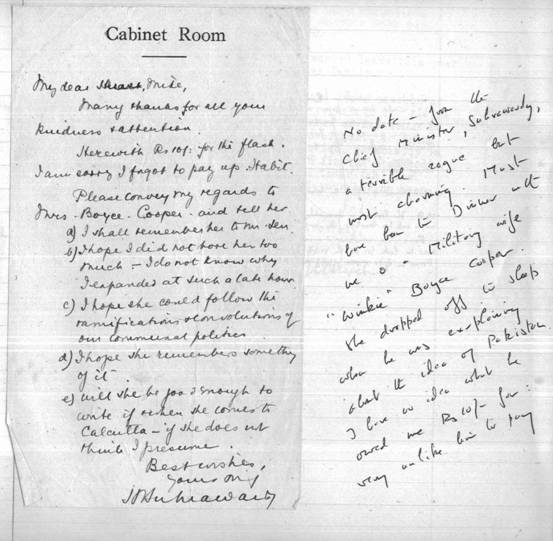 Cabinet Room
My dear Mike,
Many thanks for all your
kindness & attention.
Herewith Rs 10/- for the flask.
I am sorry I forgot to pay up. Habit.
Please convey my regards to
Mrs. Boyce-Cooper and tell her
a) I shall remember her to Mr. Sen
b) I hope I did not bore her too
much – I do not know why
I expanded at such a late hour.
c) I hope she could follow the
ramifications & convolutions of
our communal politics
d) I hope she remembers something
of it
e) Will she be good enough to
write if & when she comes to
Calcutta – if she does not
think I presume.
Best wishes,
Yours
HSSuhrawardy
No date – from the
Chief Minister, Suhrawardy,
a terrible rogue but
most charming. Must
have been to Dinner with
me & a Military wife
"Winkie" Boyce Cooper.
She dropped off to sleep
when he was explaining
about the idea of Pakistan
I have no idea what he
owed me Rs 10/- for:
very unlike him to pay